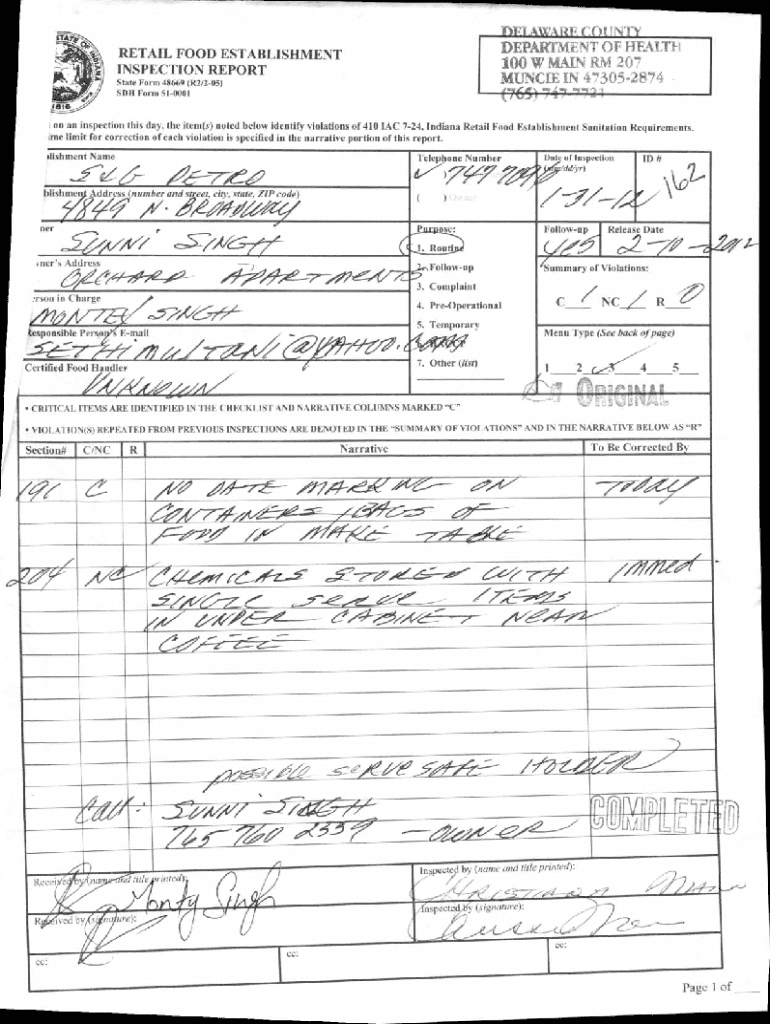 RETAIL FOOD ESTABLISHMENT
INSPECTION REPORT
State Form 48669 (R2/2-05)
SDH Form 51-0001
DELAWARE COUNTY
DEPARTMENT OF HEALTH
100 W MAIN RM 207
MUNCIE IN 47305-2874
(765) 747-7721
on an inspection this day, the item(s) noted below identify violations of 410 IAC 7-24, Indiana Retail Food Establishment Sanitation Requirements.
me limit for correction of each violation is specified in the narrative portion of this report.
lishment Name
S&G PETRO
Telephone Number
747 7090
( ) Owner
Date of Inspection
(mm/dd/yr)
1-31-12
ID #
162
blishment Address (number and street, city, state, ZIP code)
4849 N. BROADWAY
ner
SUNNI SINGH
ner's Address
ORCHARD APARTMENTS
erson in Charge
MONTEY SINGH
Responsible Person's E-mail
SETHIMULTANI@YAHOO.COM
Certified Food Handler
UNKNOWN
Purpose:
1. Routine
2. Follow-up
3. Complaint
4. Pre-Operational
5. Temporary
7. Other (list)
Follow-up
yes
Release Date
2-10-2012
Summary of Violations:
C 1 NC 1 R 0
Menu Type (See back of page)
1 2 3 4 5
ORIGINAL
• CRITICAL ITEMS ARE IDENTIFIED IN THE CHECKLIST AND NARRATIVE COLUMNS MARKED "C"
• VIOLATION(S) REPEATED FROM PREVIOUS INSPECTIONS ARE DENOTED IN THE "SUMMARY OF VIOLATIONS" AND IN THE NARRATIVE BELOW AS "R"
Section# C/NC R Narrative To Be Corrected By
191 C NO DATE MARKING ON TODAY
CONTAINERS / BAGS OF
FOOD IN MAKE TABLE
204 NC CHEMICALS STORED WITH immed.
SINGLE SERVE ITEMS
IN UNDER CABINET NEAR
COFFEE
possible SERVE SAFE HOLDER
Call: SUNNI SINGH
765 760 2339 - OWNER
COMPLETED
Received by (name and title printed):
Monty Singh
Inspected by (name and title printed):
Received by (signature):
Inspected by (signature):
cc:
cc:
cc:
Page 1 of